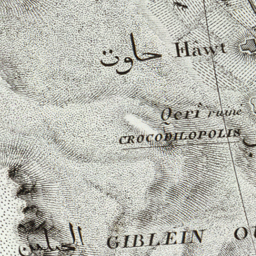 حاوت Hawt
Qeri ruiné
CROCODILOPOLIS
الجبلين GIBLEIN OU